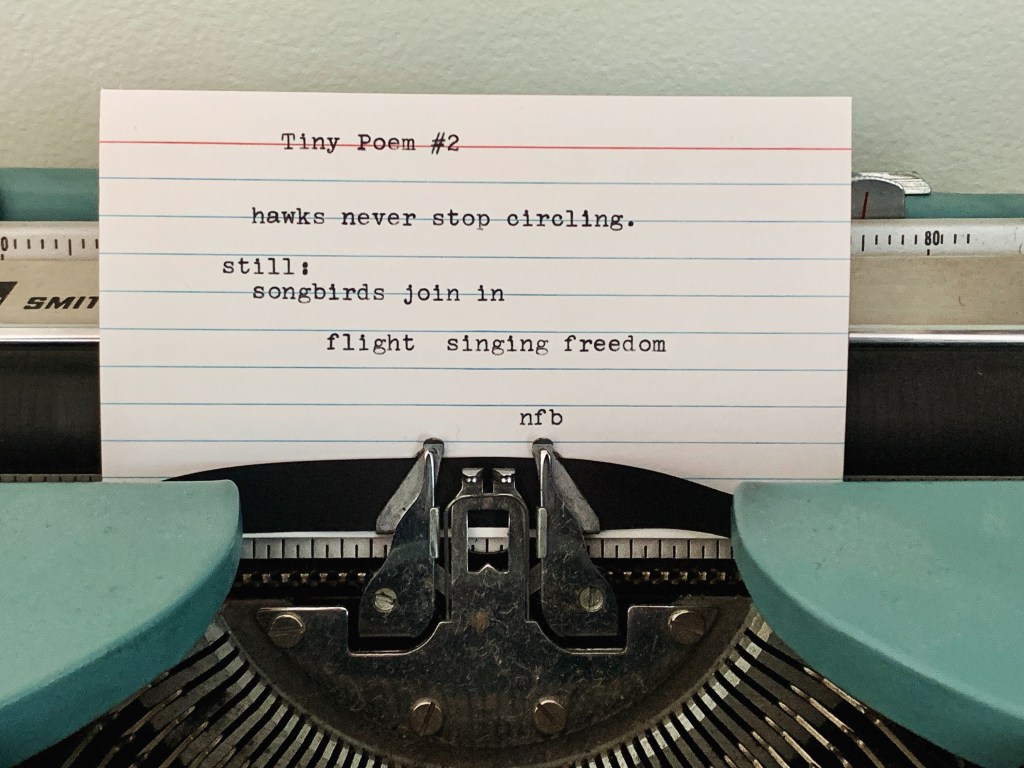 Tiny Poem #2
hawks never stop circling.
still:
songbirds join in
flight  singing freedom
nfb
0
80
SMIT